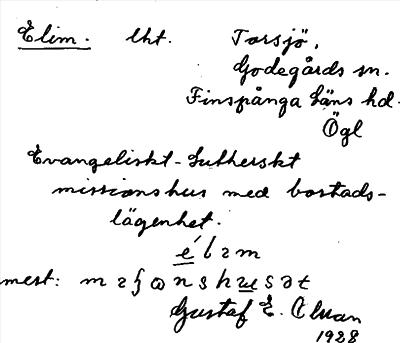 Elim. lht. Torsjö,
Godegårds sn.
Finspånga läns hd.
Ögl
Evangeliskt-Lutherskt
missionshus med bostads-
lägenhet.
mest:
Gustaf E.
1928